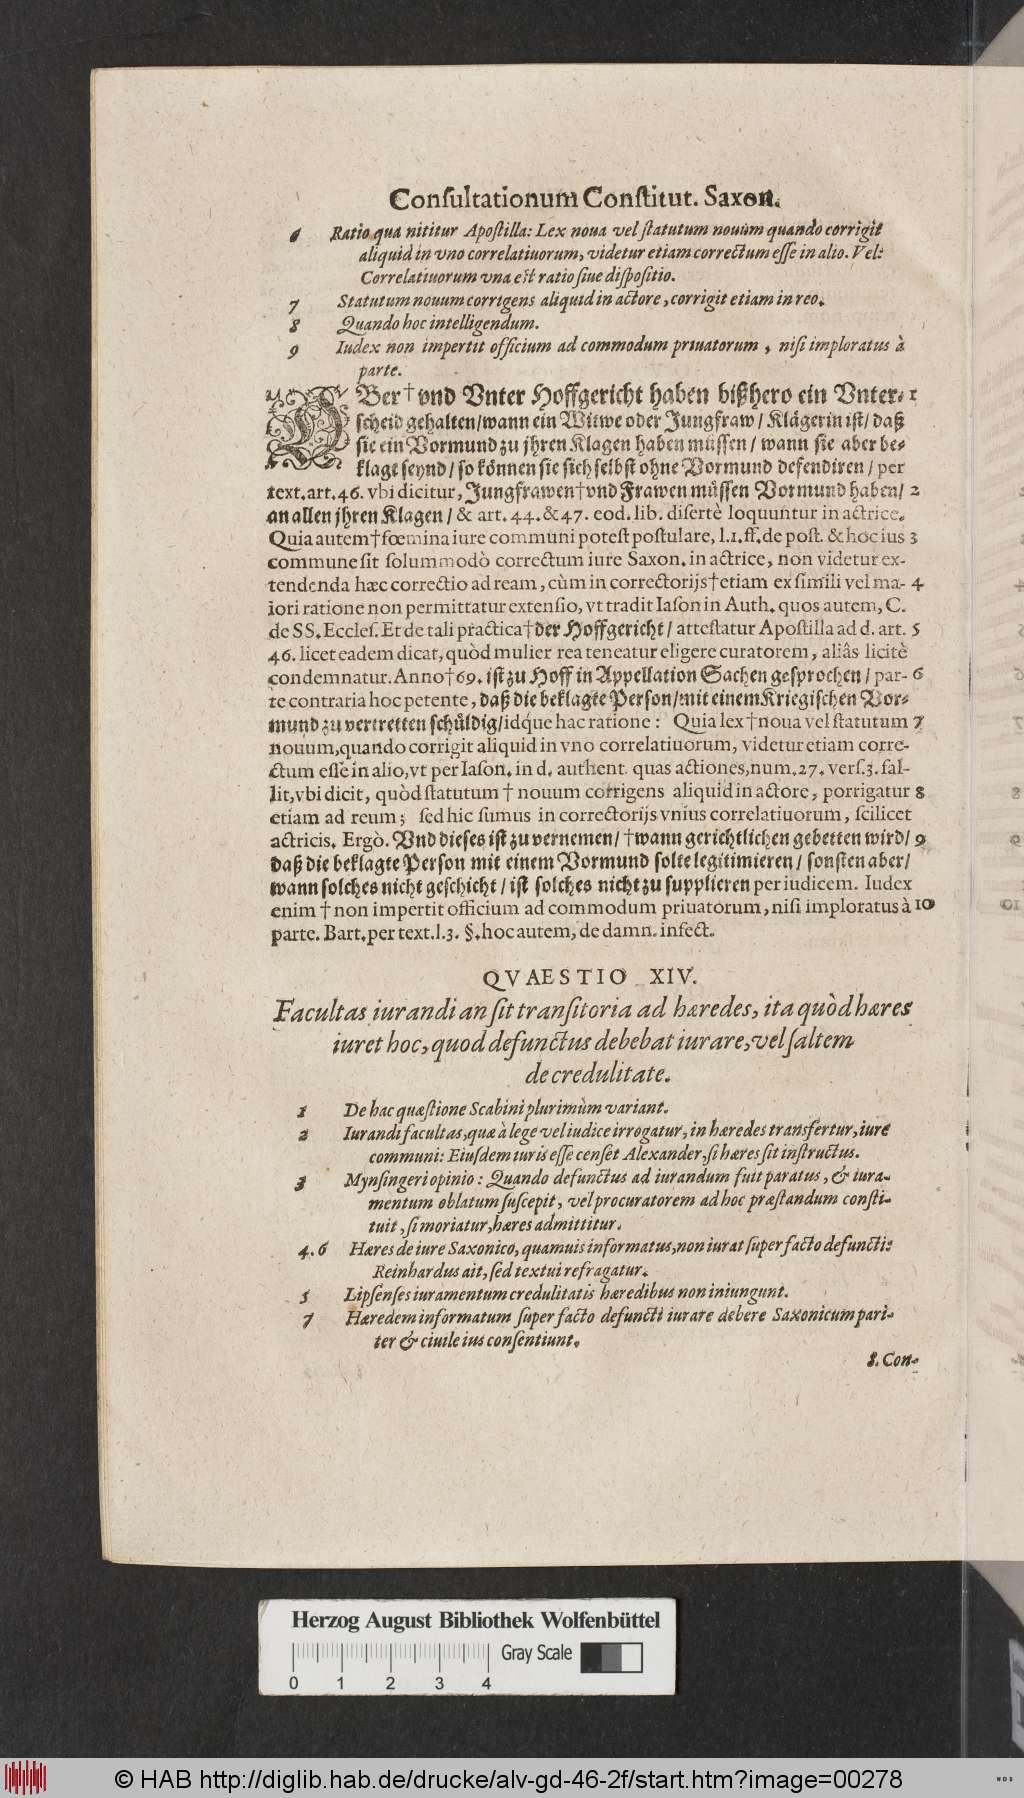 Conſultationum Conſtitut. Saxon.
6 Ratio qua nititur Apoſtilla: Lex noua vel ſtatutum nouum quando corrigit
aliquid in vno correlatiuorum, videtur etiam correctum eſſe in alio. Vel:
Correlatiuorum vna eſt ratio ſiue diſpoſitio.
7 Statutum nouum corrigens aliquid in actore, corrigit etiam in reo.
8 Quando hoc intelligendum.
9 Iudex non impertit officium ad commodum priuatorum, niſi imploratus à
parte.
OBer† vnd Vnter Hoffgericht haben bißhero ein Vnter- 1
ſcheid gehalten/ wann ein Witwe oder Jungfraw/ Klägerin iſt/ daß
ſie ein Vormund zu jhren Klagen haben müſſen/ wann ſie aber be-
klagt ſeynd/ ſo können ſie ſich ſelbſt ohne Vormund defendiren/ per
text. art. 46. vbi dicitur, Jungfrawen† vnd Frawen müſſen Vormund haben/ 2
an allen jhren Klagen/ & art. 44. & 47. eod. lib. diſertè loquuntur in actrice.
Quia autem† fœmina iure communi poteſt poſtulare, l. 1. ff. de poſt. & hoc ius 3
commune ſit ſolummodò correctum iure Saxon. in actrice, non videtur ex-
tendenda hæc correctio ad ream, cùm in correctorijs† etiam ex ſimili vel ma- 4
iori ratione non permittatur extenſio, vt tradit Iaſon in Auth. quos autem, C.
de SS. Eccleſ. Et de tali practica† der Hoffgericht/ atteſtatur Apoſtilla ad d. art. 5
46. licet eadem dicat, quòd mulier rea teneatur eligere curatorem, aliâs licitè
condemnatur. Anno† 69. iſt zu Hoff in Appellation Sachen geſprochen/ par- 6
te contraria hoc petente, daß die beklagte Perſon/ mit einem Kriegiſchen Vor-
mund zu vertretten ſchüldig/ idq́ue hac ratione: Quia lex† noua vel ſtatutum 7
nouum, quando corrigit aliquid in vno correlatiuorum, videtur etiam corre-
ctum eſſe in alio, vt per Iaſon. in d. authent. quas actiones, num. 27. verſ. 3. fal-
lit, vbi dicit, quòd ſtatutum † nouum corrigens aliquid in actore, porrigatur 8
etiam ad reum; ſed hic ſumus in correctorijs vnius correlatiuorum, ſcilicet
actricis. Ergò. Vnd dieſes iſt zu vernemen/ † wann gerichtlichen gebetten wird/ 9
daß die beklagte Perſon mit einem Vormund ſolte legitimieren/ ſonſten aber/
wann ſolches nicht geſchicht/ iſt ſolches nicht zu ſupplieren per iudicem. Iudex
enim † non impertit officium ad commodum priuatorum, niſi imploratus à 10
parte. Bart. per text. l. 3. §. hoc autem, de damn. infect.
QVAESTIO XIV.
Facultas iurandi an ſit tranſitoria ad hæredes, ita quòd hæres
iuret hoc, quod defunctus debebat iurare, vel ſaltem
de credulitate.
1 De hac quæſtione Scabini plurimùm variant.
2 Iurandi facultas, quæ à lege vel iudice irrogatur, in hæredes transfertur, iure
communi: Eiuſdem iuris eſſe cenſet Alexander, ſi hæres ſit inſtructus.
3 Mynſingeri opinio: Quando defunctus ad iurandum fuit paratus, & iura-
mentum oblatum ſuſcepit, vel procuratorem ad hoc præſtandum conſti-
tuit, ſi moriatur, hæres admittitur.
4. 6 Hæres de iure Saxonico, quamuis informatus, non iurat ſuper facto defuncti:
Reinhardus ait, ſed textui refragatur.
5 Lipſenſes iuramentum credulitatis hæredibus non iniungunt.
7 Hæredem informatum ſuper facto defuncti iurare debere Saxonicum pari-
ter & ciuile ius conſentiunt.
8. Con-
Herzog August Bibliothek Wolfenbüttel
Gray Scale
0 1 2 3 4
© HAB http://diglib.hab.de/drucke/alv-gd-46-2f/start.htm?image=00278